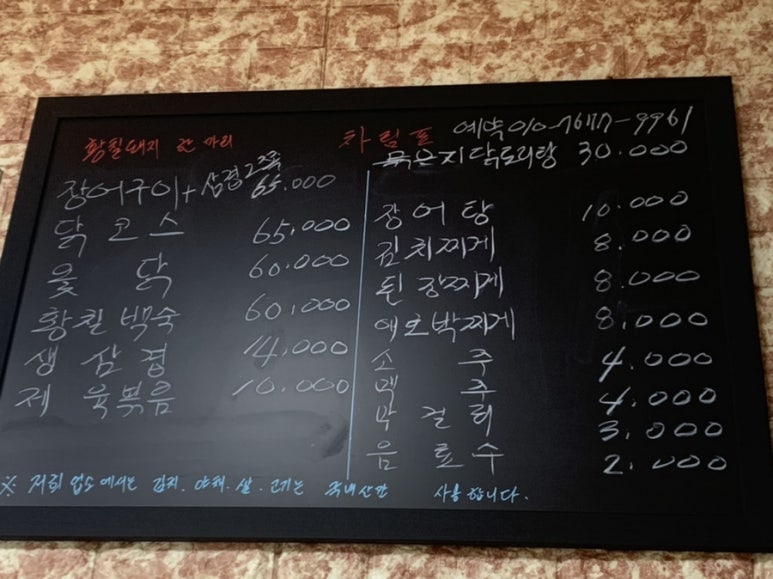 황칠돼지 한 마리
차림표
예약 010-7677-9961
장어구이+삼겹2쪽 65.000
닭코스 65.000
옻닭 60.000
황칠백숙 60.000
생삼겹 14.000
제육볶음 10.000
묵은지닭도리탕 30.000
장어탕 10.000
김치찌게 8.000
된장찌게 8.000
애호박찌게 8.000
소주 4.000
맥주 4.000
막걸리 3.000
음료수 2.000
※ 저희 업소에서는 김치. 야채. 쌀. 고기는 국내산만 사용합니다.